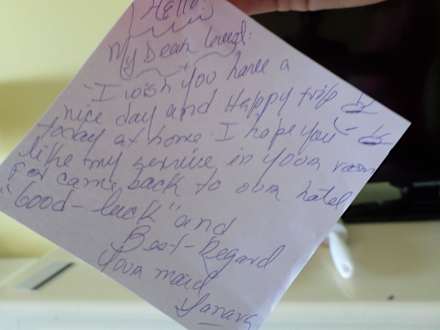 Hello!
My Dear Guest:
I wish you have a
nice day and Happy trip
today at home I hope you
like my service in your room
For came back to our hotel
"Good-luck" and
Best-Regard
Your maid